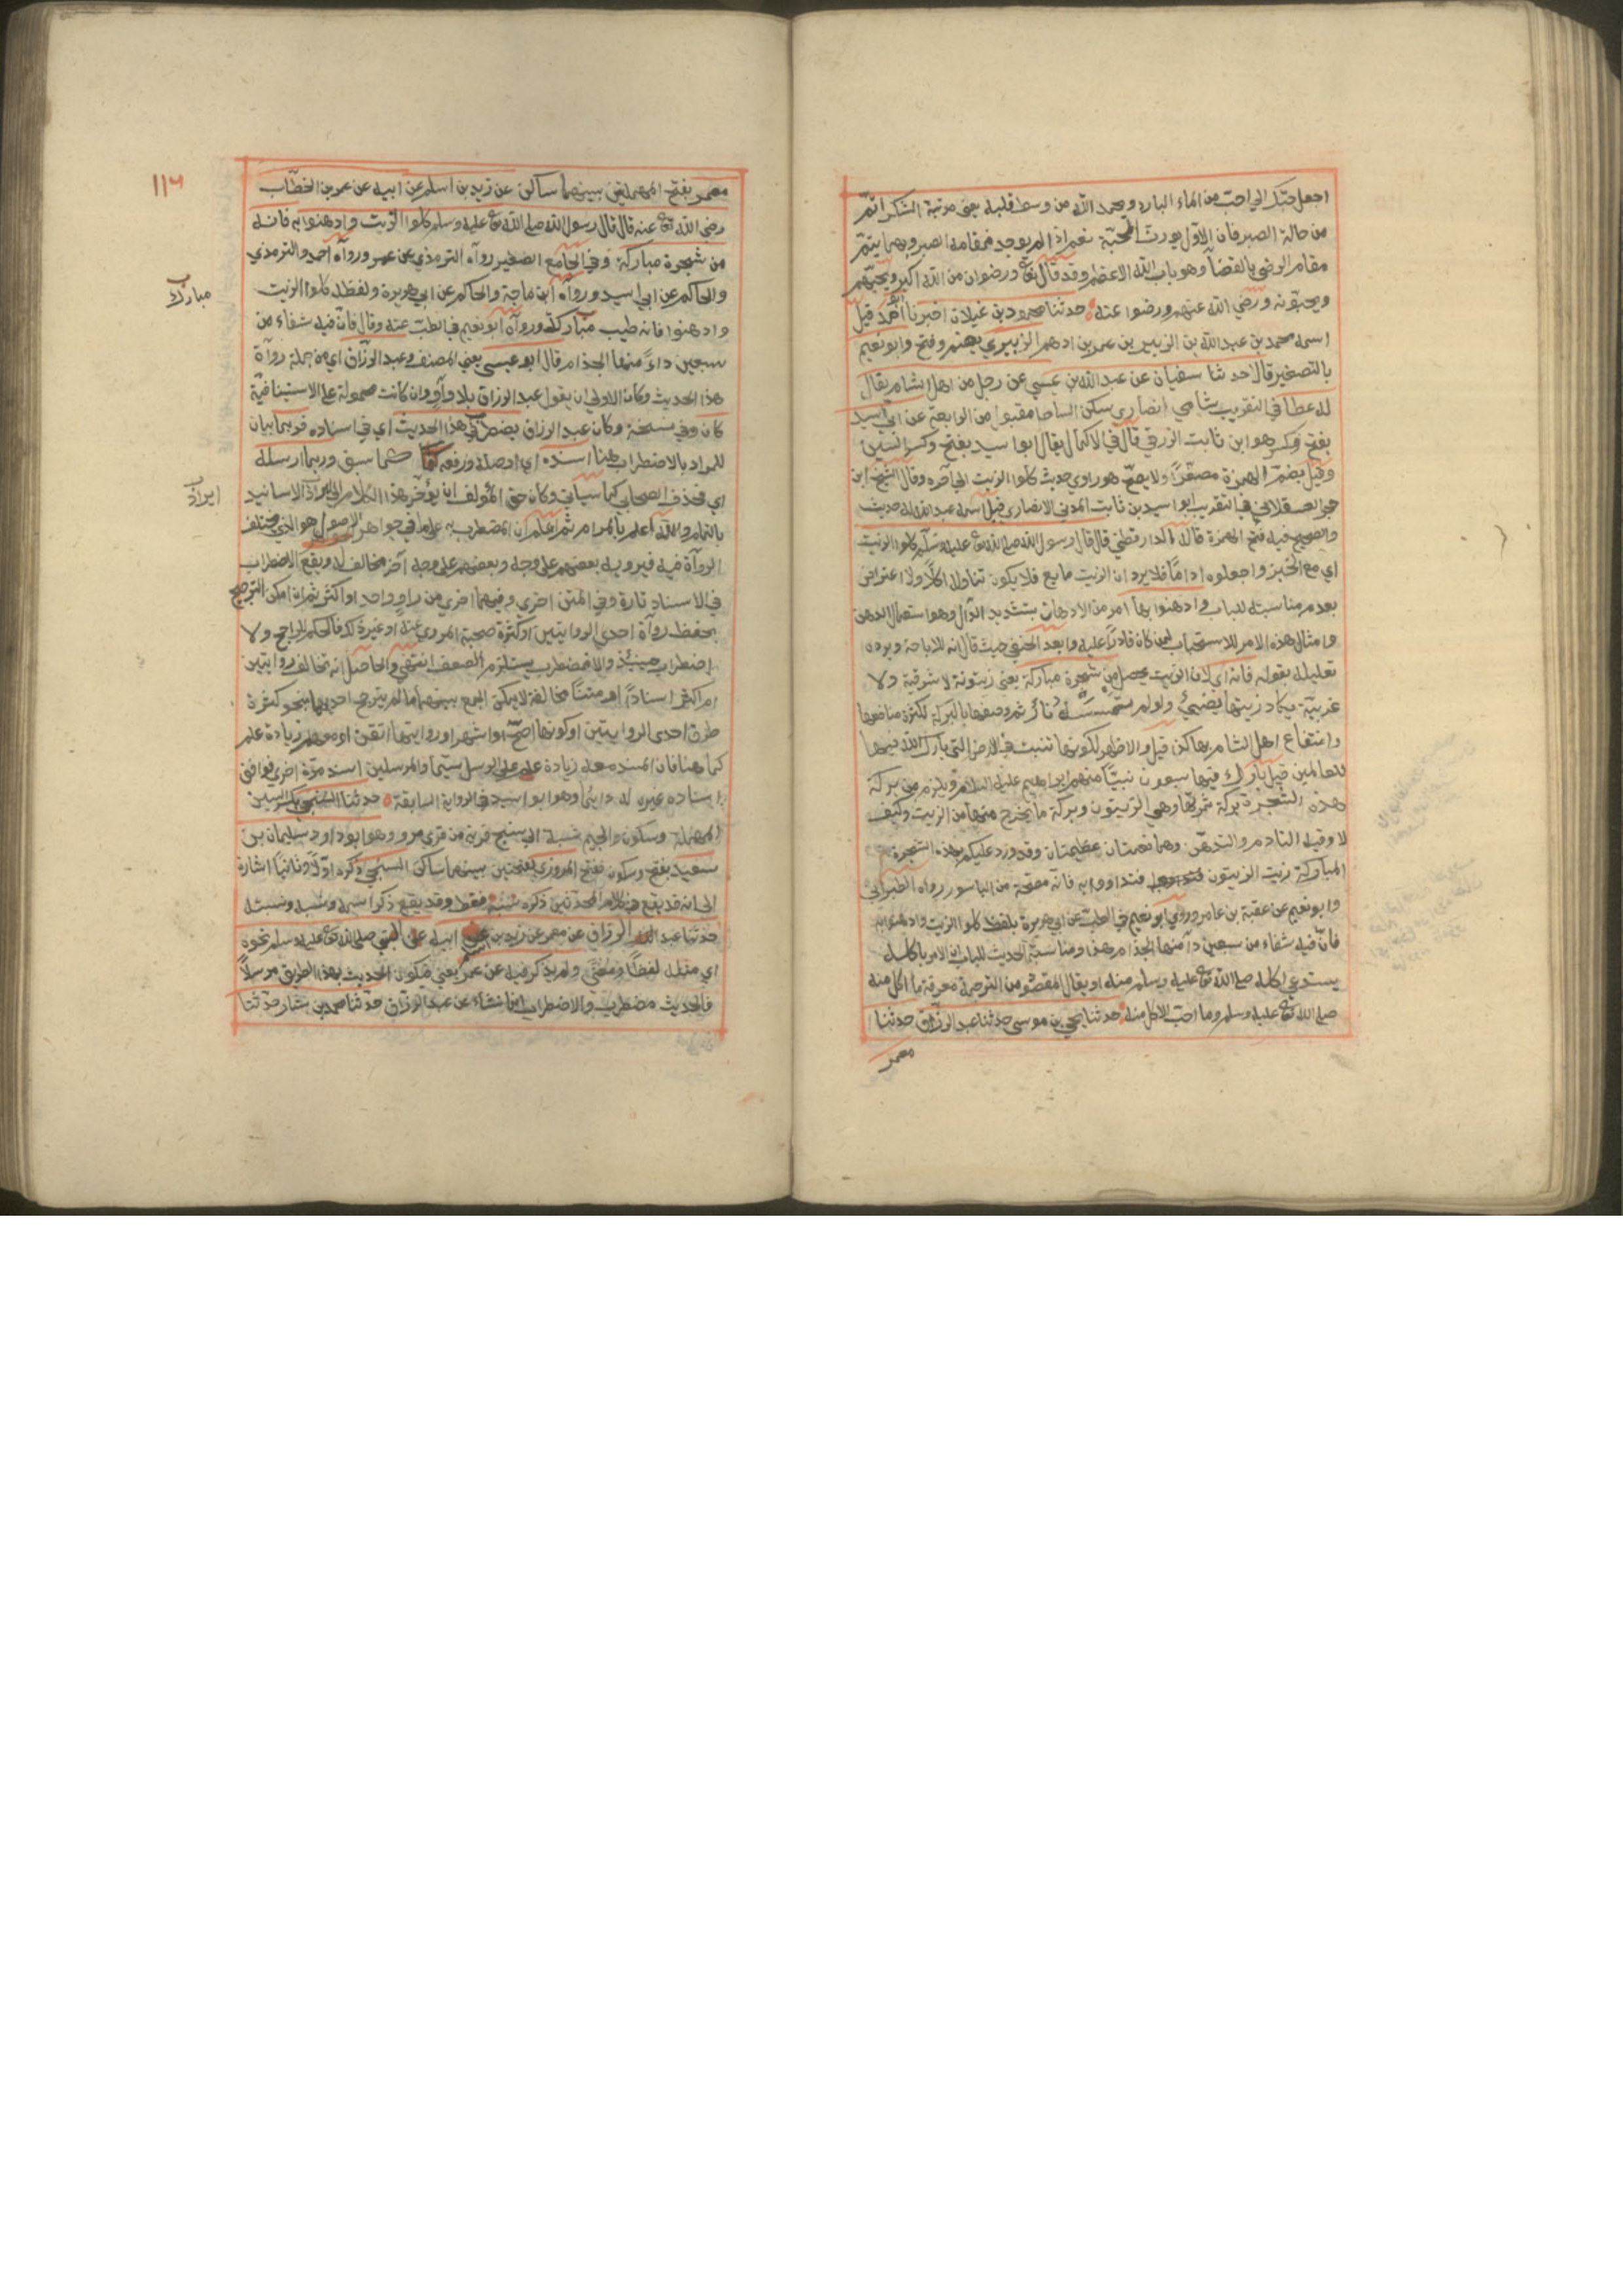 اجعل حبك الي احب من الماء البارد ويحمد الله من وسط قلبه يعني مرتبة الشكر اتم
من حالة الصبر فان الاول يورث المحبة نعم اذا لم يوجد فمقامه الصبر وبهما يتم
مقام الرضى بالقضاء وهو باب الله الاعظم وقد قال تع ورضوان من الله اكبر ويحبهم
ويحبونه ورضي الله عنهم ورضوا عنه حدثنا محمود بن غيلان اخبرنا احمد قيل
اسمه محمد بن عبد الله بن الزبير بن عمر بن ادهم الزبيري بضم وفتح وابو نعيم
بالتصغير قال حدثنا سفيان عن عبد الله بن عيسى عن رجل من اهل الشام يقال
له عطا في التقريب شامي انصاري سكن الساحل مقبول من الرابعة عن ابي اسيد
بفتح فكسر هو ابن ثابت الزرقي قال في الاكمال يقال ابو اسيد بفتح وكسر السين
وقيل بضم الهمزة مصغرا ولا يصح هو راوي حديث كلوا الزيت الى آخره وقال الشيخ ابن
حجر العسقلاني في التقريب ابو اسيد بن ثابت المدني الانصاري قيل اسمه عبد الله له حديث
والصحيح فيه فتح الهمزة قاله الدارقطني قال قال رسول الله صلى الله تع عليه وسلم كلوا الزيت
اي مع الخبز واجعلوه اداما فلا يرد ان الزيت مايع فلا يكون تناوله اكلا ولا اعتراض
بعدم مناسبته للباب وادهنوا به امر من الادهان بتشديد الدال وهو استعمال الدهن
وامثال هذه الامر للاستحباب لمن كان قادرا عليه وابعد الحنفي حيث قال انه للاباحة ويرده
تعليله بقوله فانه اي لان الزيت يحصل من شجرة مباركة يعني زيتونة لا شرقية ولا
غربية يكاد زيتها يضيئ ولو لم تمسسه نار ثم وصفها بالبركة لكثرة منافعها
وانتفاع اهل الشام بها كذا قيل والاظهر لكونها تنبت في الارض التي بارك الله فيها
للعالمين قيل بارك فيها سبعون نبيا منهم ابراهيم عليه السلام ويلزم من بركة
هذه الشجرة بركة ثمرتها وهي الزيتون وبركة ما يخرج منها من الزيت وكيف
لا وفيه التادم والتدهن وهما نعمتان عظيمتان وقد ورد عليكم بهذه الشجرة
المباركة زيت الزيتون فتداووا به فانه مصحة من الباسور رواه الطبراني
وابو نعيم عن عقبة بن عامر وروى ابو نعيم في الطب عن ابي هريرة بلفظ كلوا الزيت وادهنوا به
فان فيه شفاء من سبعين داء منها الجذام هذا ومناسبة الحديث للباب ان الامر باكله
يستدعي اكله صلى الله تع عليه وسلم منه او يقال المقصود من الترجمة معرفة ما اكل منه
صلى الله تع عليه وسلم وما احب الاكل منه حدثنا يحيى بن موسى حدثنا عبد الرزاق حدثنا
معمر
١١٦
معمر بفتح المهملتين بينهما ساكن عن زيد بن اسلم عن ابيه عن عمر بن الخطاب
رضي الله تع عنه قال قال رسول الله صلى الله تع عليه وسلم كلوا الزيت وادهنوا به فانه
من شجرة مباركة وفي الجامع الصغير رواه الترمذي عن عمر ورواه احمد والترمذي
والحاكم عن ابي اسيد ورواه ابن ماجة والحاكم عن ابي هريرة ولفظه كلوا الزيت
مبارك
وادهنوا فانه طيب مبارك ورواه ابو نعيم في الطب عنه وقال فان فيه شفاء من
سبعين داء منها الجذام قال ابو عيسى يعني المصنف وعبد الرزاق اي من جملة رواة
هذا الحديث وكان الاولى ان يقول عبد الرزاق بلا واو وان كانت محمولة على الاستينافية
كان وفي نسخة وكان عبد الرزاق يضطرب في هذا الحديث اي في اسناده فربما بيان
للمراد بالاضطراب هنا اسنده اي اوصله ورفعه كما سبق وربما ارسله
اي فحذف الصحابي كما سياتي وكان حق المؤلف ان يؤخر هذا الكلام الى ايراد الاسانيد
ايراد
بالتمام والله اعلم بالمرام ثم اعلم ان المضطرب به على ما في جواهر الاصول هو الذي يختلف
الرواة فيه فيرويه بعضهم على وجه وبعضهم على وجه آخر مخالف له ويقع الاضطراب
في الاسناد تارة وفي المتن اخرى وفيهما اخرى من راو واحد او اكثر ثم ان امكن الترجيح
بحفظ رواة احدى الروايتين او كثرة صحبة المروي عنه او غير ذلك فالحكم للراجح ولا
اضطراب حينئذ والا فمضطرب يستلزم الضعف انتهى والحاصل انه تخالف روايتين
او اكثر اسنادا او متنا مخالفة لا يمكن الجمع بينهما ما لم يترجح احديهما بنحو كثرة
طرق احدى الروايتين او كونها اصح او اشهر او رواتها اتقن او معهم زيادة علم
كما هنا فان المسند معه زيادة علم على المرسل سيما والمرسلين اسند مرة اخرى فوافق
اسناده غيره له دايما وهو ابو اسيد في الرواية السابقة حدثنا السنجي بكسر السين
المهملة وسكون والجيم نسبة الى سنج قرية من قرى مرو وهو ابو داود سليمان بن
سعيد بفتح وسكون ففتح المروزي بفتحتين بينهما ساكن السنجي ذكره اولا وثانيا اشارة
الى انه قد يقع في كلام المحدثين ذكره بنسبه فقط وقد يقع ذكر اسمه ونسبه ونسبته
حدثنا عبد الرزاق عن معمر عن زيد بن اسلم عن ابيه عن النبي صلى الله تع عليه وسلم نحوه
اي مثله لفظا ومعنى ولم يذكر فيه عن عمر يعني فيكون الحديث بهذا الطريق مرسلا
فالحديث مضطرب والاضطراب انما نشاء عن عبد الرزاق حدثنا محمد بن بشار حدثنا